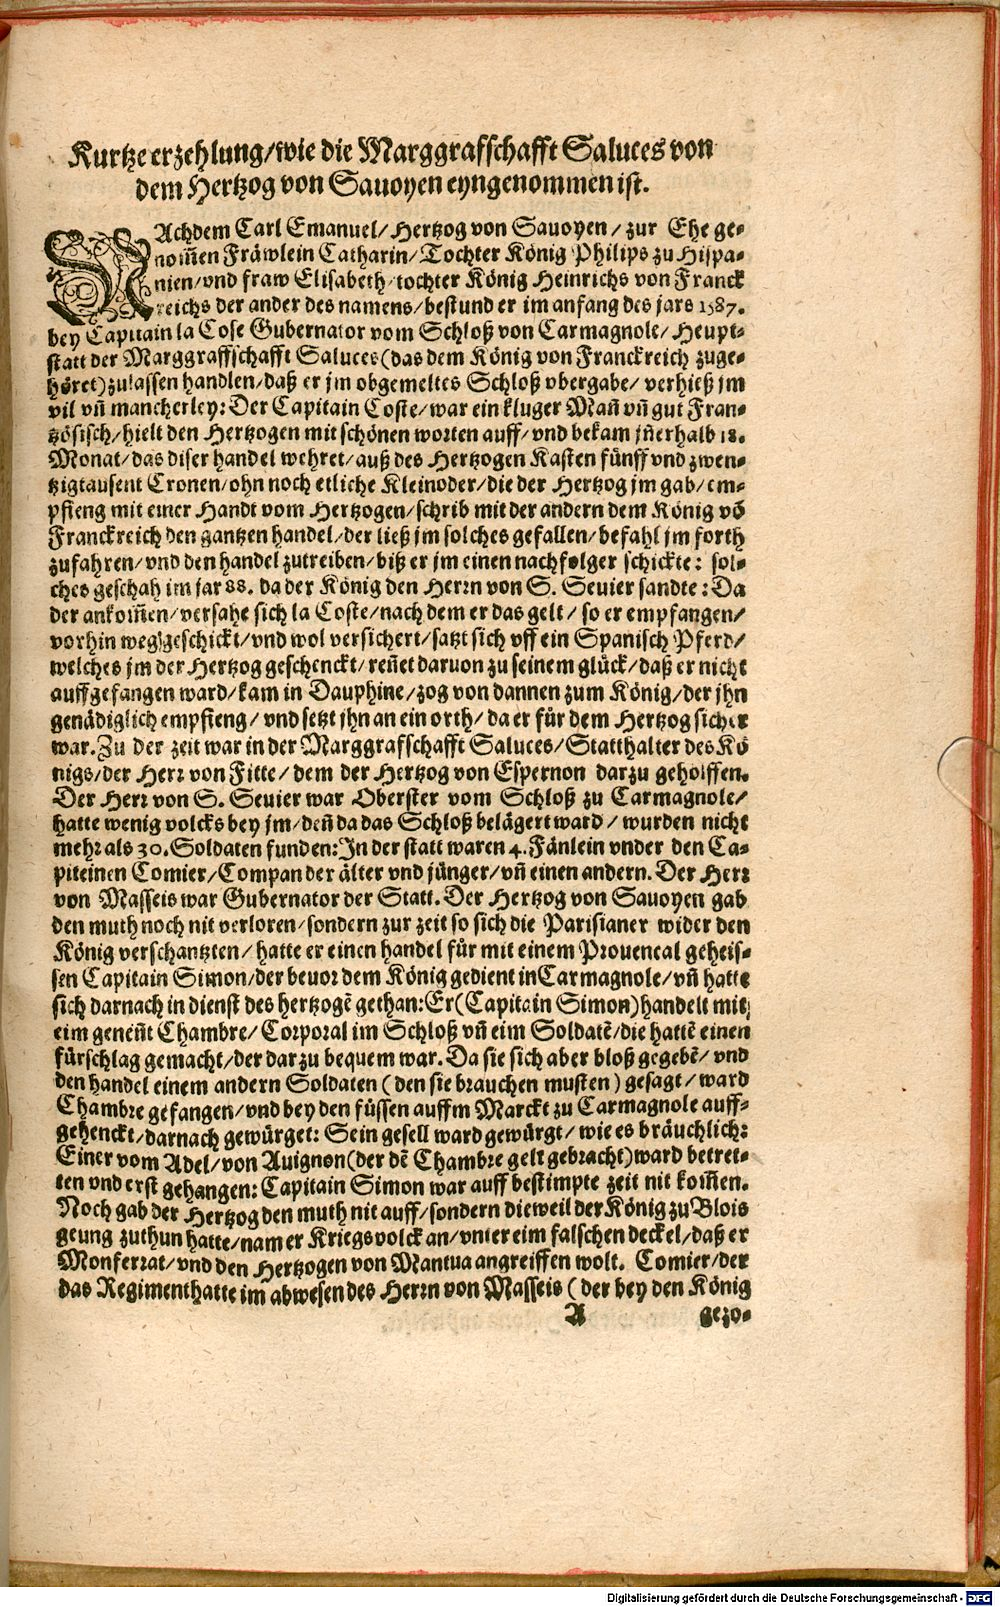 Kurtze erzehlung/wie die Marggrafschafft Saluces von
dem Hertzog von Sauoyen eyngenommen ist.
NAchdem Carl Emanuel/ Hertzog von Sauoyen/ zur Ehe ge-
nom̃en Fräwlein Catharin/ Tochter König Philips zu Hispa-
nien/ vnd fraw Elisabeth/ tochter König Heinrichs von Franck
reichs der ander des namens/ bestund er im anfang des jars 1587.
bey Capitain la Cose Gubernator vom Schloß von Carmagnole/ Heupt-
statt der Marggraffschafft Saluces (das dem König von Franckreich zuge-
höret) zulassen handlen/ daß er jm obgemeltes Schloß vbergabe/ verhieß jm
vil vñ mancherley: Der Capitain Coste/ war ein kluger Mañ vñ gut Fran-
tzösisch/ hielt den Hertzogen mit schönen worten auff/ vnd bekam jñerhalb 18.
Monat/ das diser handel wehret/ auß des Hertzogen Kasten fünff vnd zwen-
tzigtausent Cronen/ ohn noch etliche Kleinoder/ die der Hertzog jm gab/ em-
pfieng mit einer Handt vom Hertzogen/ schrib mit der andern dem König võ
Franckreich den gantzen handel/ der ließ jm solches gefallen/ befahl jm forth
zufahren/ vnd den handel zutreiben/ biß er jm einen nachfolger schickte: sol-
ches geschah im jar 88. da der König den Herrn von S. Seuier sandte: Da
der ankom̃en/ versahe sich la Coste/ nach dem er das gelt/ so er empfangen/
vorhin weggeschickt/ vnd wol versichert/ satzt sich vff ein Spanisch Pferd/
welches jm der Hertzog geschenckt/ reñet daruon zu seinem glück/ daß er nicht
auffgefangen ward/ kam in Dauphine/ zog von dannen zum König/ der jhn
genädiglich empfieng/ vnd setzt jhn an ein orth/ da er für dem Hertzog sicher
war. Zu der zeit war in der Marggrafschafft Saluces/ Statthalter des Kö
nigs/ der Herr von Fitte/ dem der Hertzog von Espernon darzu geholffen.
Der Herr von S. Seuier war Oberster vom Schloß zu Carmagnole/
hatte wenig volcks bey jm/ deñ da das Schloß belägert ward/ wurden nicht
mehr als 30. Soldaten funden: In der statt waren 4. Fänlein vnder den Ca-
piteinen Comier/ Compan der älter vnd jünger/ vñ einen andern. Der Herr
von Masseis war Gubernator der Statt. Der Hertzog von Sauoyen gab
den muth noch nit verloren/ sondern zur zeit so sich die Parisianer wider den
König verschantzten/ hatte er einen handel für mit einem Prouencal geheis-
sen Capitain Simon/ der beuor dem König gedient in Carmagnole/ vñ hatte
sich darnach in dienst des hertzogẽ gethan: Er (Capitain Simon) handelt mit
eim geneñt Chambre/ Corporal im Schloß vñ eim Soldatẽ/ die hattẽ einen
fürschlag gemacht/ der darzu bequem war. Da sie sich aber bloß gegebẽ/ vnd
den handel einem andern Soldaten (den sie brauchen musten) gesagt/ ward
Chambre gefangen/ vnd bey den füssen auffm Marckt zu Carmagnole auff-
gehenckt/ darnach gewürget: Sein gesell ward gewürgt/ wie es bräuchlich:
Einer vom Adel/ von Auignon (der dẽ Chambre gelt gebracht) ward betret-
ten vnd erst gehangen: Capitain Simon war auff bestimpte zeit nit kom̃en.
Noch gab der Hertzog den muth nit auff/ sondern dieweil der König zu Blois
genug zuthun hatte/ nam er Kriegsvolck an/ vnter eim falschen deckel/ daß er
Monferrat/ vnd den Hertzogen von Mantua angreiffen wolt. Comier/ der
das Regiment hatte im abwesen des Herrn von Masseis (der bey den König
A gezo-
Digitalisierung gefördert durch die Deutsche Forschungsgemeinschaft - DFG